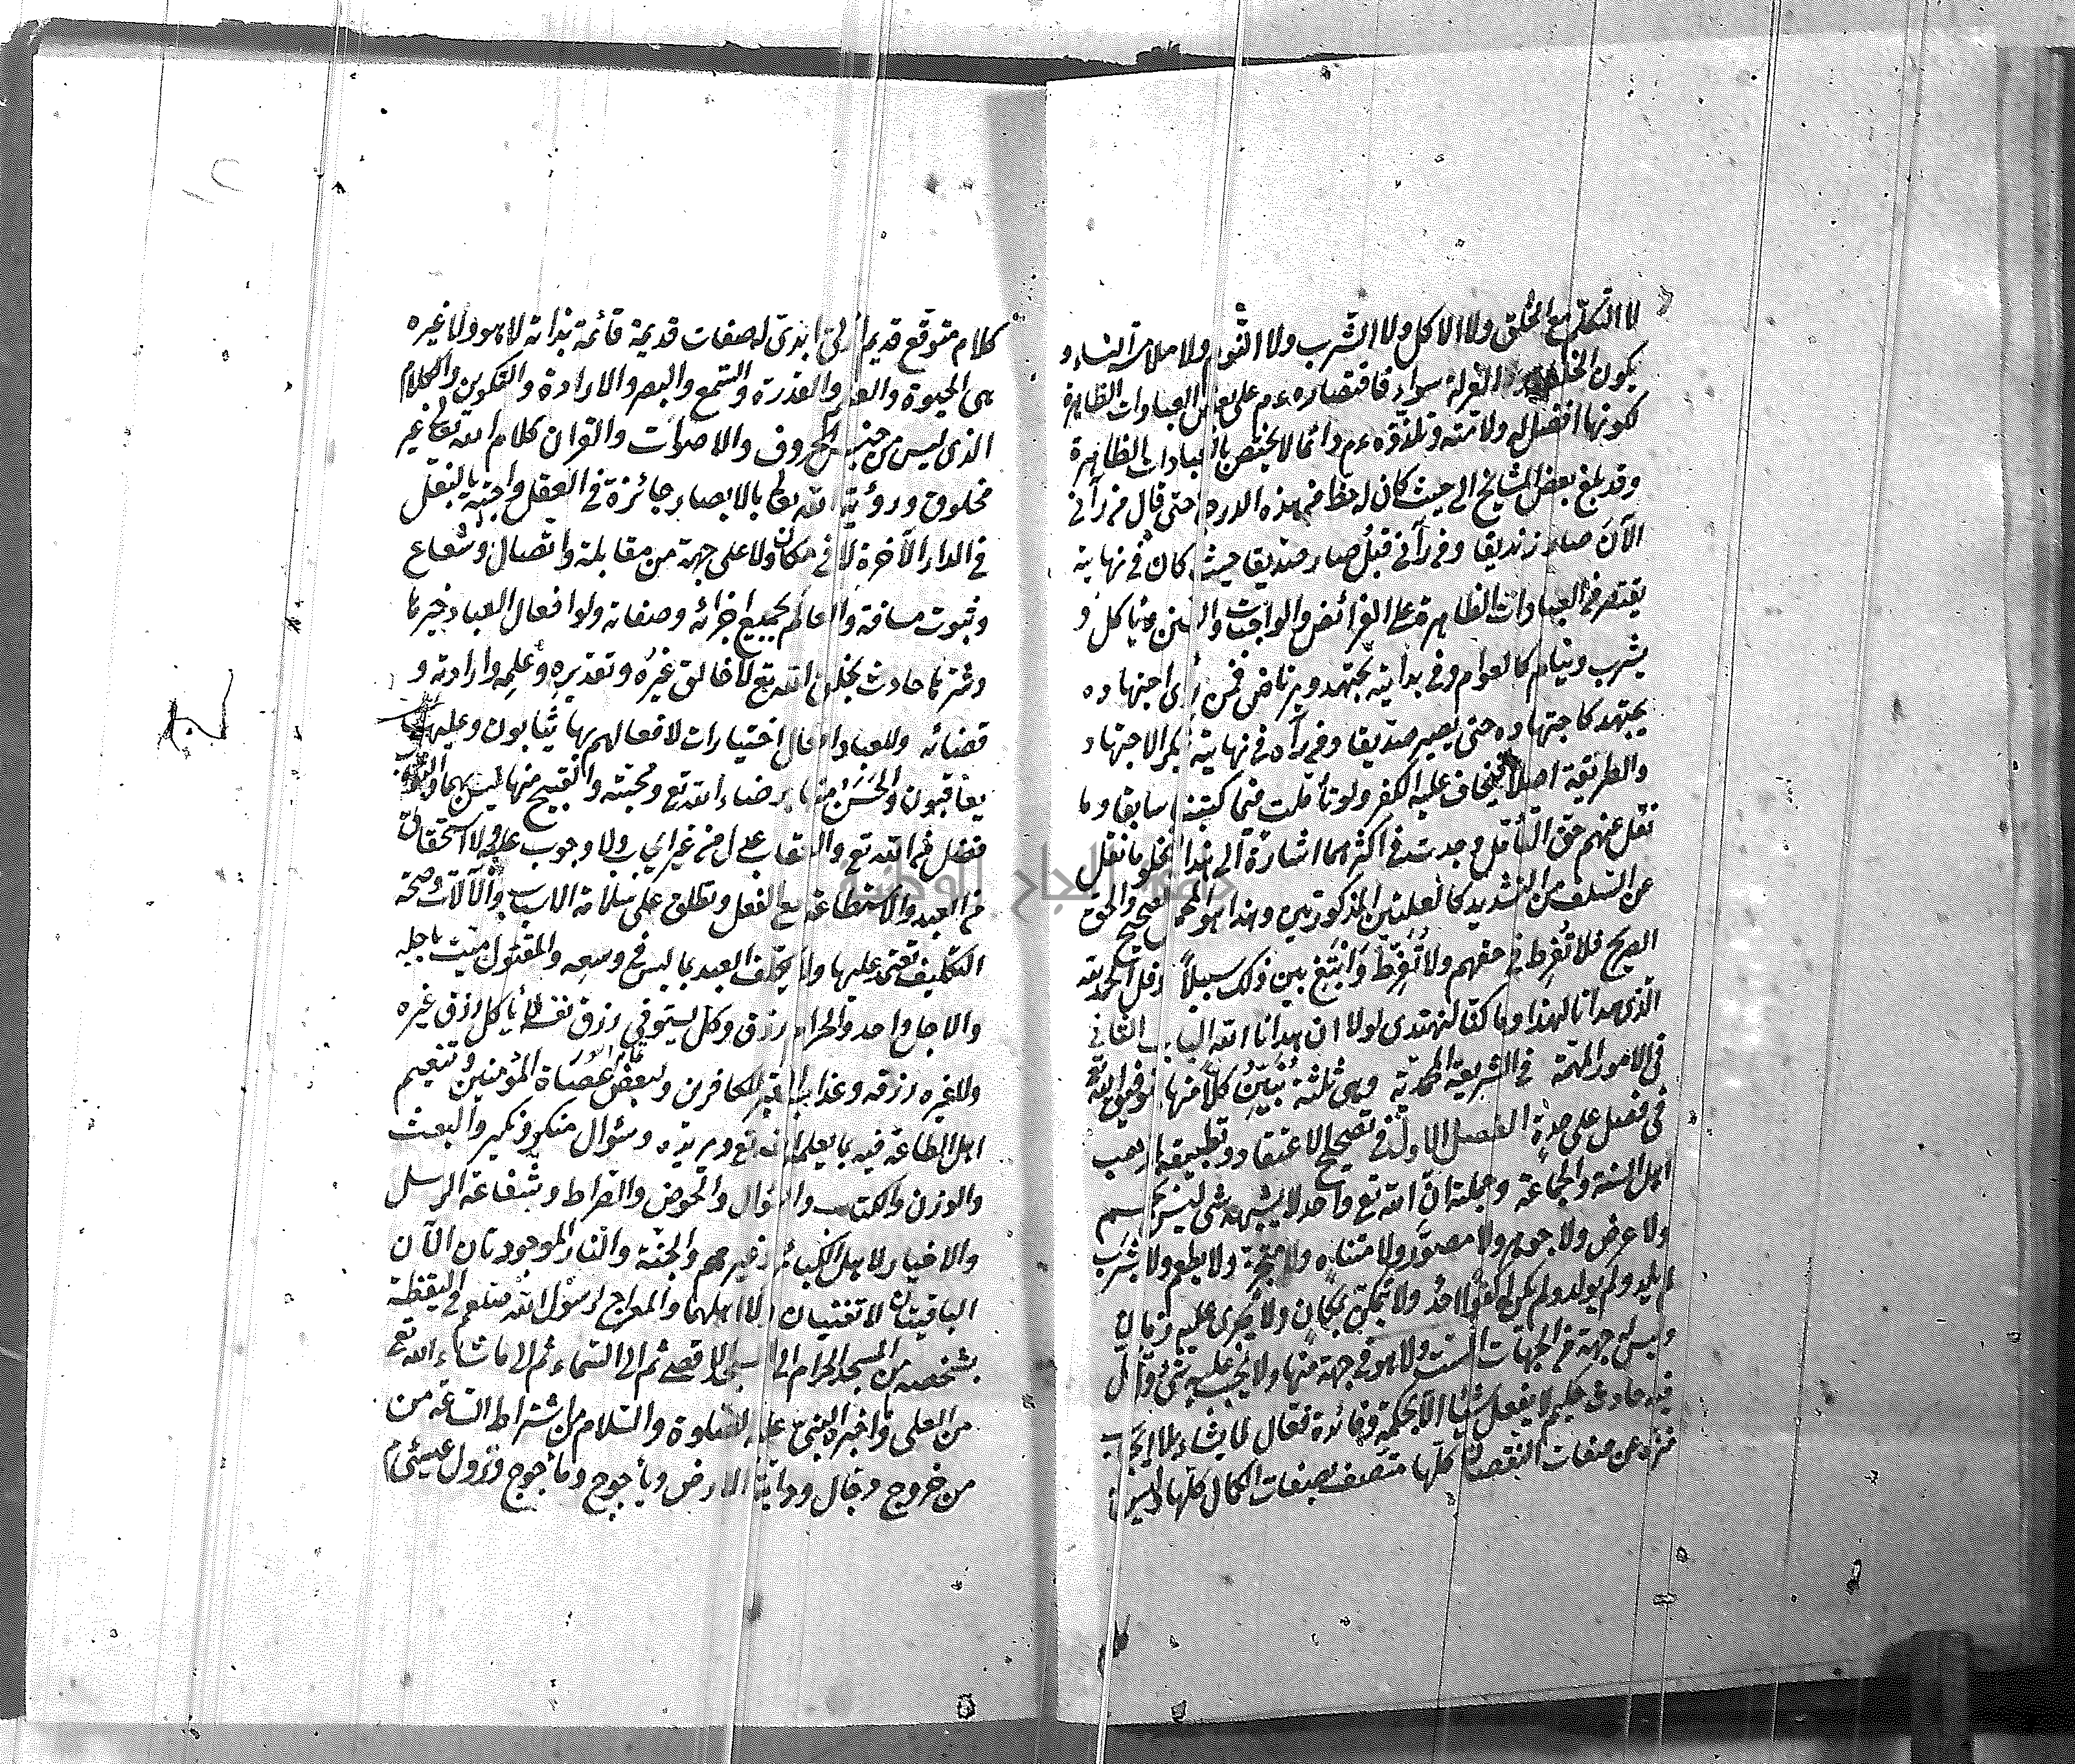 لا التكلم مع الخلق ولا الاكل ولا الشرب ولا النوم ولا ملامسة النساء و
يكون الخلطة والعزلة سواء فاقتصاره ءم على بعض العبادات الظاهرة
لكونها افضل له ولامته وتلذذه ءم دائما لا يختص بالعبادات الظاهرة
وقد بلغ بعض المشايخ الى حيث كان له حظ من هذه الدرجة حتى قال من رآني
الآن صار زنديقا ومن رآني قبل صار صديقا حيث كان في نهايته
يقتصر من العبادات الظاهرة على الفرائض والواجبات والسنن وياكل و
يشرب وينام كالعوام وفي بدايته يجتهد ويرتاض فمن رأى اجتهاده
يجتهد كاجتهاده حتى يصير صديقا ومن رآه في نهايته ينكر الاجتهاد
والطريقة اصلا فيخاف عليه الكفر ولو تأملت فيما كتبنا سابقا وما
نقل عنهم حق التأمل وجدت في اكثرهما اشارة الى هذا فخلو ما نقل
عن السلف من التشديد كالعلتين المذكورتين وهذا هو المحمل الصحيح والحق
الصريح فلا تُفرط في حقهم ولا تُفرّط وابتغ بين ذلك سبيلا وقل الحمد لله
الذي هدانا لهذا وما كنا لنهتدي لولا ان هدانا الله الباب الثاني
في الامور المهمة في الشريعة المحمدية وهي ثلثة نبين كلا منها بتوفيق الله
في فصل على حدة الفصل الاول في تصحيح الاعتقاد وتطبيقه لمذهب
اهل السنة والجماعة وجملته ان الله تع واحد لا يشبهه شئ ليس بجسم
ولا عرض ولا جوهر ولا مصور ولا متناه ولا متجز ولا يطعم ولا يشرب
لم يلد ولم يولد ولم يكن له كفوا احد ولا يتمكن بمكان ولا يجري عليه زمان
وليس له جهة من الجهات الست ولا هو في جهة منها ولا يجب عليه شئ ولا يحل
فيه حادث حكيم لا يفعل شيئا الا بحكمة وفائدة فعال لما يشاء بلا ايجاب
منزه عن صفات النقصان كلها متصف بصفات الكمال كلها وليس له
كلا
كلام متوقع قديم ازلي ابدي له صفات قديمة قائمة بذاته لا هو ولا غيره
هي الحيوة والعلم والقدرة والسمع والبصر والارادة والتكوين والكلام
الذي ليس من جنس الحروف والاصوات والقرآن كلام الله تعالى غير
مخلوق ورؤية الله تعالى بالابصار جائزة في العقل واجبة بالنقل
في الدار الآخرة لا في مكان ولا على جهة من مقابلة واتصال وشعاع
وثبوت مسافة والعالم بجميع اجزائه وصفاته ولو افعال العباد خيرها
وشرها حادث بخلق الله تع لا خالق غيره وتقديره وعلمه وارادته و
قضائه وللعباد افعال اختيارات لافعالهم بها يثابون وعليها
يعاقبون والحسن منها برضاء الله تع ومحبته والقبيح منها ليس بهما والثواب
فضل من الله تع والعقاب عدل من غير ايجاب ولا وجوب عليه ولا استحقاق
من العبد والاستطاعة مع الفعل وتطلق على سلامة الاسباب والآلات وصحة
التكليف تعتمد عليها ولا يكلف العبد بما ليس في وسعه والمقتول ميت باجله
والاجل واحد والحرام رزق وكل يستوفي رزق نفسه لا يأكل رزق غيره
ولا غيره رزقه وعذاب القبر للكافرين ولبعض عصاة المؤمنين وتنعيم
اهل الطاعة فيه بما يعلمه الله تع ويريده وسؤال منكر ونكير والبعث
والوزن والكتاب والسؤال والحوض والصراط وشفاعة الرسل
والاخيار لاهل الكبائر وغيرهم والجنة والنار الموجودتان الآن
الباقيتان لا تفنيان ولا اهلهما والمعراج لرسول الله صلعم في اليقظة
بشخصه من المسجد الحرام الى المسجد الاقصى ثم الى السماء ثم الى ما شاء الله تع
من العلى وما اخبر النبي عليه الصلوة والسلام من اشتراط الساعة من
من خروج دجال ودابة الارض ويأجوج ومأجوج ونزول عيسى ءم